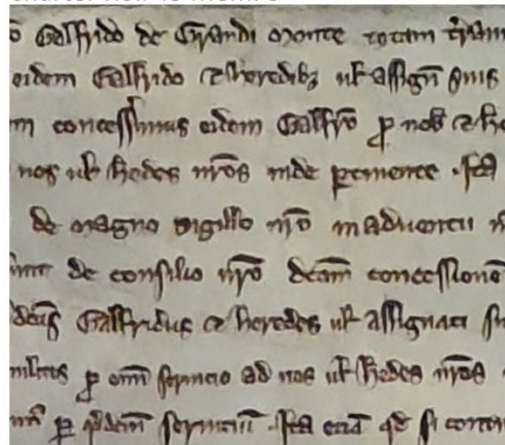 Galfrido de Grandi Monte totam t̄ram
eidem Galfrido & heredibȝ ul̄ assign̄ suis
m concessimus eidem Galfr̄o p̱ nob̄ & he
nos ul̄ h̄edes nr̄os inde ptinente . Ita
de magno sigillo nr̄o inadventu n
de consilio nr̄o dc̄am concessionē
dc̄us Galfridus & heredes ul̄ assignati su
militis p̱ om̄i servicio ad nos ul̄ h̄edes nr̄os
p̱ p̄dcm̄ serviciū . Ita eciā qd̄ si contin